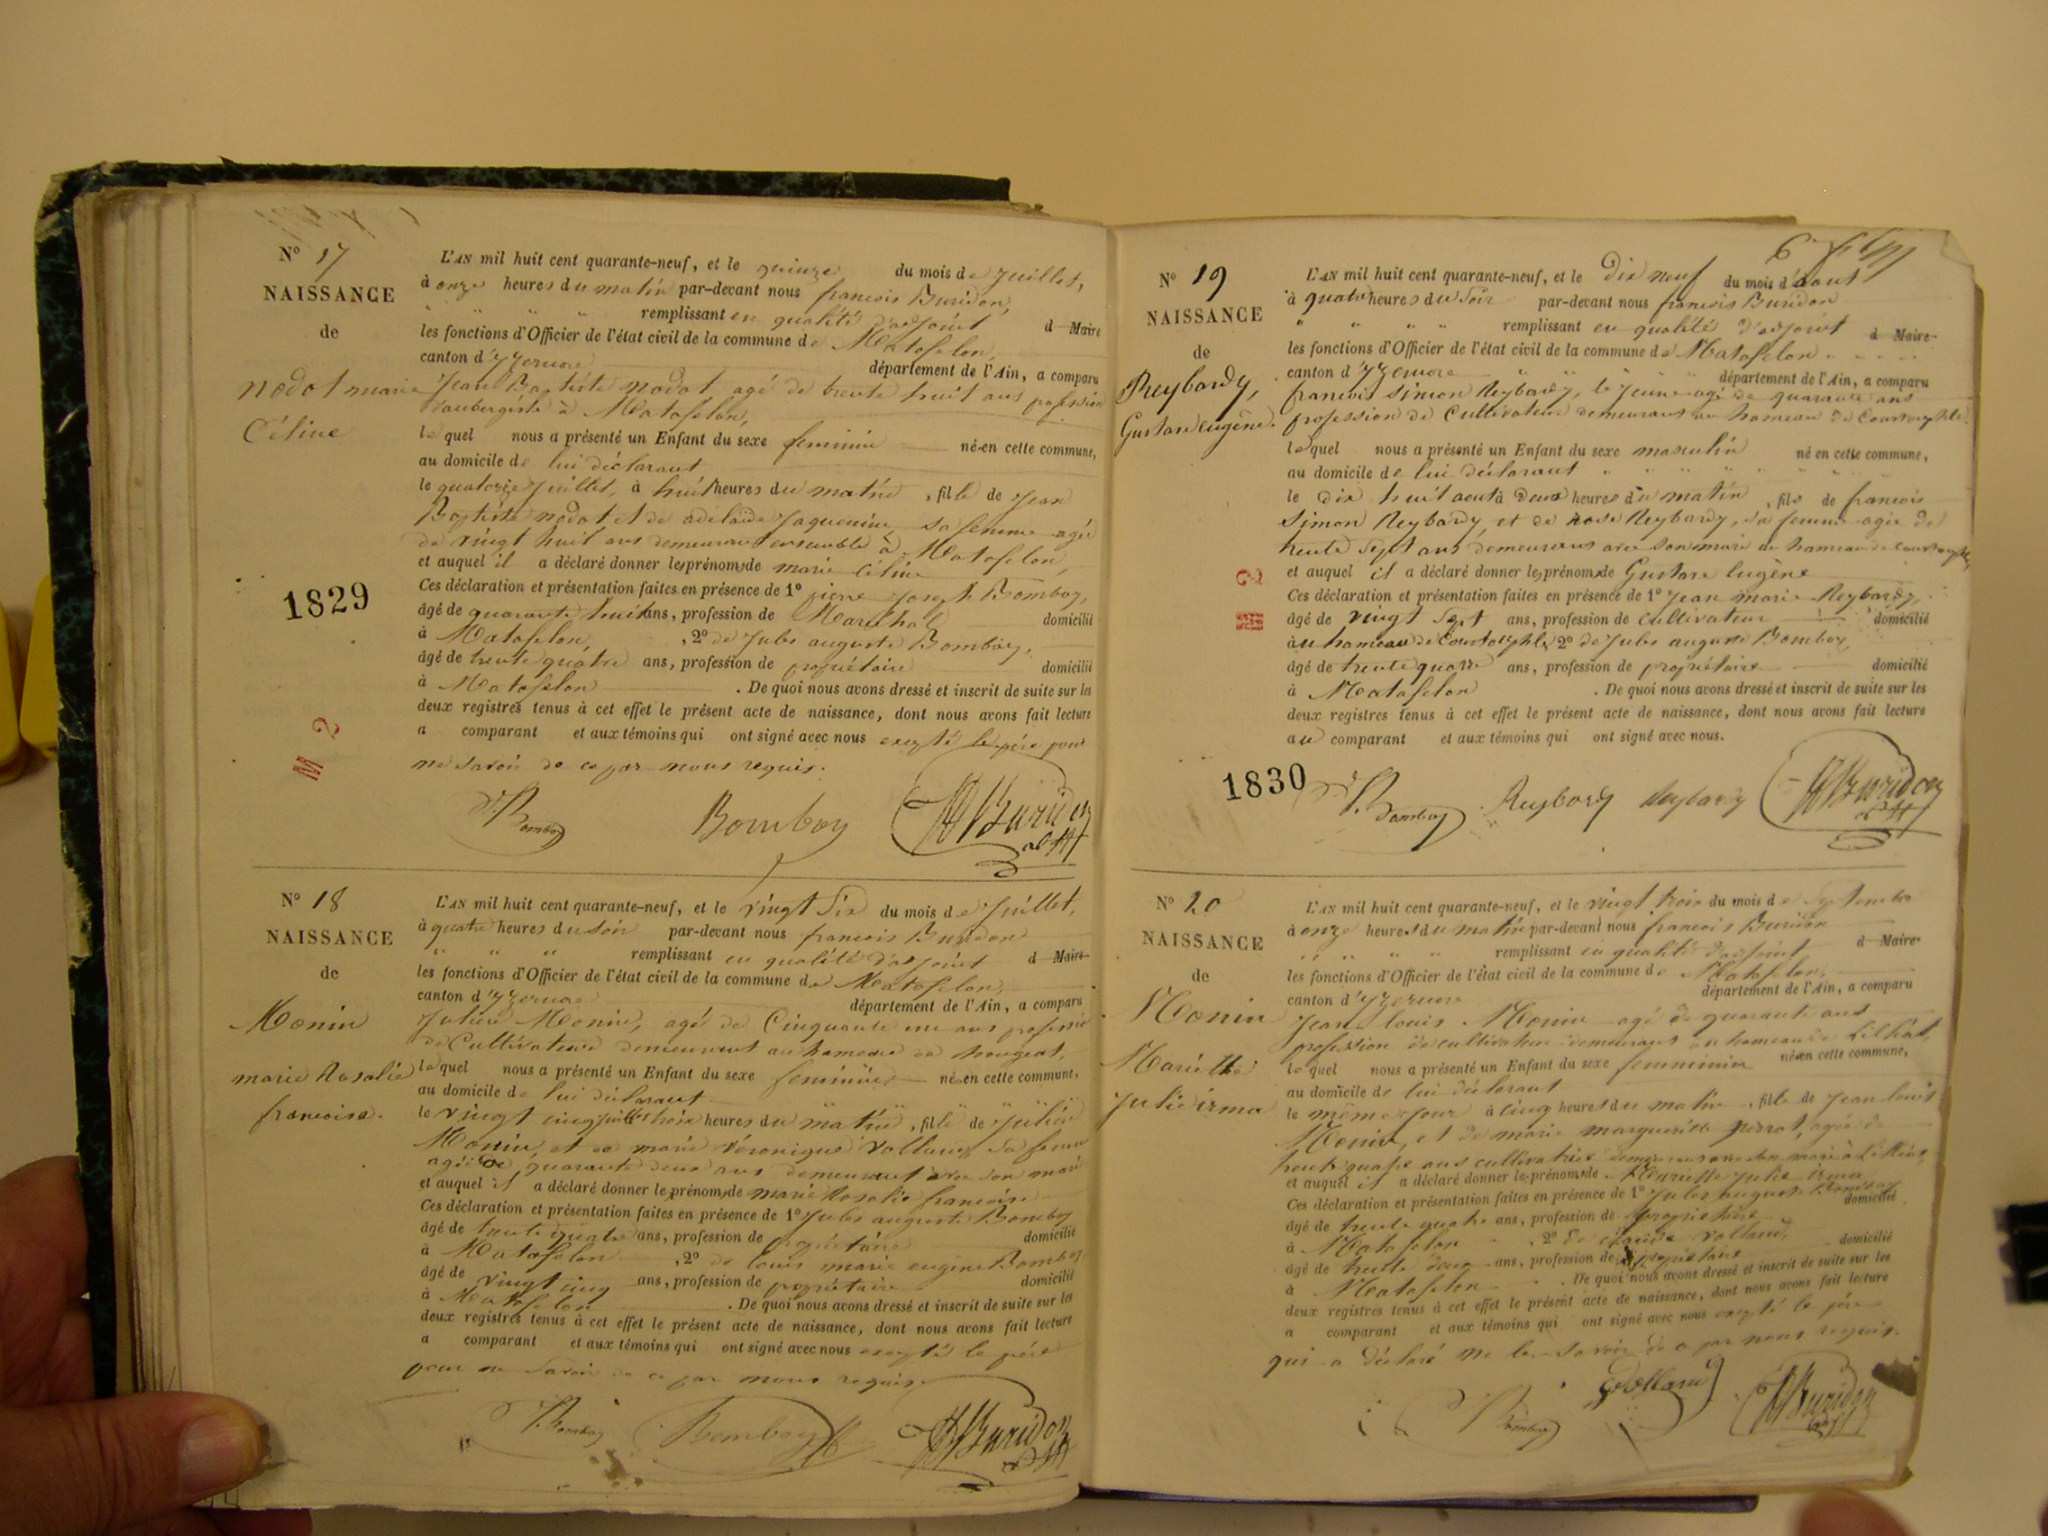 N° 17
NAISSANCE
de
Nodot marie
Céline
L'AN mil huit cent quarante-neuf, et le quinze du mois de Juillet,
à onze heures du matin par-devant nous francois Buridon,
remplissant en qualité d'adjoint d Maire
les fonctions d'Officier de l'état civil de la commune de Matafelon,
canton d'yzernore département de l'Ain, a comparu
Jean Baptiste Nodot agé de trente huit ans profession
d'aubergiste à Matafelon,
lequel nous a présenté un Enfant du sexe feminin né en cette commune,
au domicile de lui déclarant
le quatorze Juillet, à huit heures du matin, fille de Jean
Baptiste Nodot et de adelaïde Jaquenine sa femme agée
de vingt huit ans demeurant ensemble à Matafelon,
et auquel il a déclaré donner les prénoms de marie Céline
Ces déclaration et présentation faites en présence de 1° pierre Joseph Bomboy,
âgé de quarante huit ans, profession de Maréchal domicilié
à Matafelon, , 2° de Jules auguste Bomboy,
âgé de trente quatre ans, profession de propriétaire domicilié
à Matafelon . De quoi nous avons dressé et inscrit de suite sur les
deux registres tenus à cet effet le présent acte de naissance, dont nous avons fait lecture
a comparant et aux témoins qui ont signé avec nous exepté le père pour
ne savoir de ce par nous requis.
1829
M 2
Bomboy Bomboy Buridon adjt
N° 18
NAISSANCE
de
Monin
marie Rosalie
francoise.
L'AN mil huit cent quarante-neuf, et le vingt Six du mois de Juillet,
à quatre heures du soir par-devant nous francois Buridon
remplissant en qualité d'adjoint d Maire
les fonctions d'Officier de l'état civil de la commune de Matafelon,
canton d'yzernore département de l'Ain, a comparu
Julien Monin, agé de Cinquante un ans profession
de Cultivateur demeurant au hameau de nougeat,
lequel nous a présenté un Enfant du sexe feminin né en cette commune,
au domicile de lui déclarant
le vingt cinq juillet trois heures du matin, fille de Julien
Monin, et de marie véronique volland, sa femme
agée de quarante deux ans demeurant avec son mari
et auquel il a déclaré donner les prénoms de marie Rosalie francoise
Ces déclaration et présentation faites en présence de 1° Jules auguste Bomboy
âgé de trente quatre ans, profession de propriétaire domicilié
à Matafelon , 2° de louis marie eugène Bomboy
âgé de vingt cinq ans, profession de propriétaire domicilié
à Matafelon . De quoi nous avons dressé et inscrit de suite sur les
deux registres tenus à cet effet le présent acte de naissance, dont nous avons fait lecture
a comparant et aux témoins qui ont signé avec nous exepté le père
pour ne savoir de ce par nous requis
Bomboy Bomboy Buridon adjt
6
N° 19
NAISSANCE
de
Reybardy,
Gustave eugène.
L'AN mil huit cent quarante-neuf, et le Dix neuf du mois d'aout
à quatre heures du Soir par-devant nous francois Buridon
remplissant en qualité d'adjoint d Maire
les fonctions d'Officier de l'état civil de la commune de Matafelon
canton d'yzernore département de l'Ain, a comparu
francois Simon Reybardy, le jeune agé de quarante ans
profession de Cultivateur demeurant au hameau de Courtouphle.
lequel nous a présenté un Enfant du sexe masculin né en cette commune,
au domicile de lui déclarant
le dix huit aout à Deux heures du matin, fils de francois
Simon Reybardy et de rose Reybardy, sa femme agée de
trente Sept ans demeurant avec son mari au hameau de Courtouphle,
et auquel il a déclaré donner les prénoms de Gustave Eugène
Ces déclaration et présentation faites en présence de 1° Jean marie Reybardy,
âgé de vingt Sept ans, profession de cultivateur domicilié
à au hameau de Courtouphle, 2° de Jules auguste Bomboy
âgé de trente quatre ans, profession de propriétaire domicilié
à Matafelon . De quoi nous avons dressé et inscrit de suite sur les
deux registres tenus à cet effet le présent acte de naissance, dont nous avons fait lecture
au comparant et aux témoins qui ont signé avec nous.
M 2
1830
Bomboy Reybardy Reybardy Buridon adjt
N° 20
NAISSANCE
de
Monin
Mariette
Julie irma
L'AN mil huit cent quarante-neuf, et le vingt trois du mois de Septembre
à onze heures du matin par-devant nous francois Buridon
remplissant en qualité d'adjoint d Maire
les fonctions d'Officier de l'état civil de la commune de Matafelon,
canton d'yzernore département de l'Ain, a comparu
Jean louis Monin agé de quarante ans
profession de cultivateur demeurant au hameau de
lequel nous a présenté un Enfant du sexe femminin né en cette commune,
au domicile de lui déclarant
le même jour à cinq heures du matin, fille de Jean louis
Monin, et de marie marguerite perrot, agée de
trente quatre ans cultivatrice demeurant avec son mari à
et auquel il a déclaré donner les prénoms de Mariette Julie irma
Ces déclaration et présentation faites en présence de 1° Jules auguste Bomboy
âgé de trente quatre ans, profession de propriétaire domicilié
à Matafelon , 2° de claude volland,
âgé de trente deux ans, profession de propriétaire domicilié
à Matafelon . De quoi nous avons dressé et inscrit de suite sur les
deux registres tenus à cet effet le présent acte de naissance, dont nous avons fait lecture
a comparant et aux témoins qui ont signé avec nous exepté le père
qui a déclaré ne le savoir de ce par nous requis.
Bomboy Volland Buridon adjt